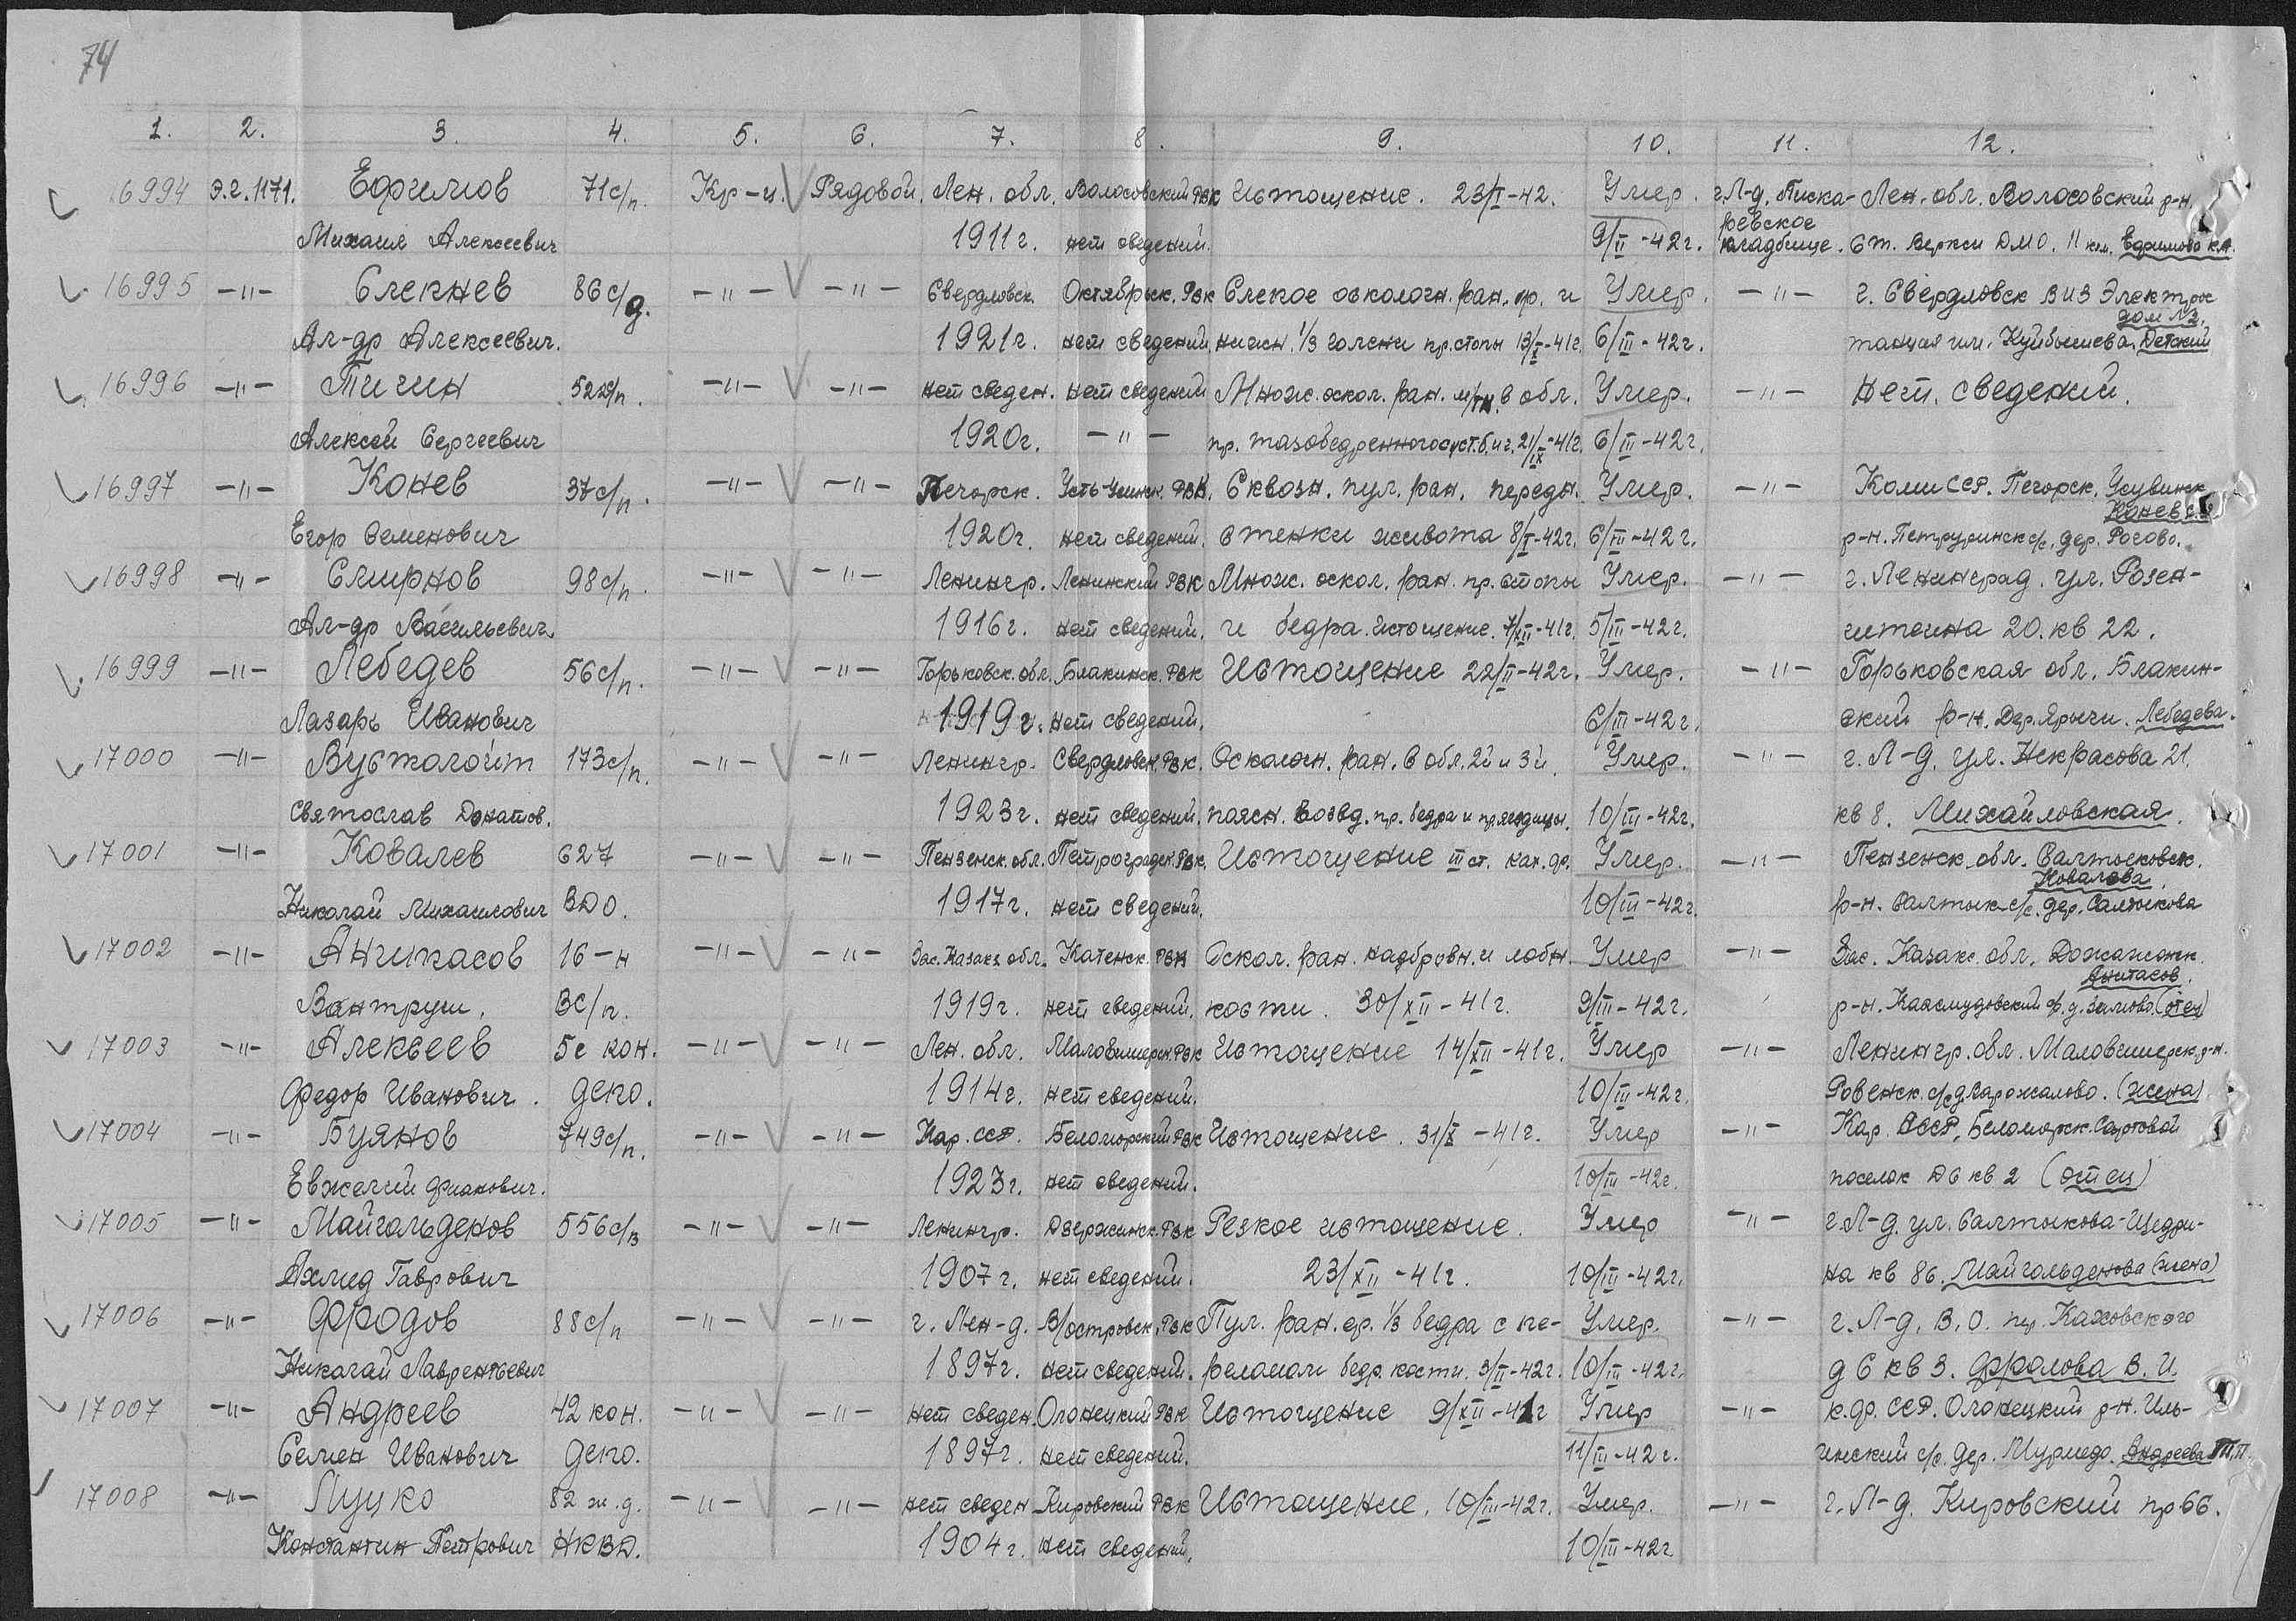 74
1. 2. 3. 4. 5. 6. 7. 8. 9. 10. 11. 12.
16994 Э.г.1171. Ефимов 71 с/п. Кр-ц. V Рядовой. Лен. обл. Волосовский РВК Истощение. 23/I-42. Умер. г.Л-д. Писка- Лен. обл. Волосовский р-н.
ревское
Михаил Алексеевич 1911г. нет сведений. 9/II-42г. кладбище. ст. Вервси ДМО. 11 км. Ефимова
16995 -"- Слекнев 86 с/д. -"- V -"- Свердловск. Октябрьск. РВК Слепое осколочн. ран. ср. и Умер. -"- г. Свердловск ВИЗ Электрос
дом №3.
Ал-др Алексеевич. 1921г. нет сведений, нижн. 1/3 голени пр. стопы 13/X-41г. 6/III-42г. танция им. Куйбышева. Детский
16996 -"- Тигин 522 с/п. -"- V -"- нет сведен. нет сведений Множ. оскол. ран. м/тк. в обл. Умер. -"- нет. сведений.
Алексей Сергеевич 1920г. -"- пр. тазобедренного суст. 21/IX-41г. 6/III-42г.
16997 -"- Конев 37 с/п. -"- V -"- Печорск. Усть-Усинск. РВК. Сквозн. пул. ран. передн. Умер. -"- Коми ССР. Печорск. Усувинск
Конев
Егор Семенович 1920г. нет сведений. стенки живота 8/I-42г. 6/III-42г. р-н. Петруринск с/с. дер. Рогово.
16998 -"- Смирнов 98 с/п. -"- V -"- Ленингр. Ленинский РВК Множ. оскол. ран. пр. стопы Умер. -"- г. Ленинград. ул. Розен-
Ал-др Васильевич. 1916г. нет сведений. и бедра. Истощение. 7/XII-41г. 5/III-42г. штеина 20. кв 22.
16999 -"- Лебедев 56 с/п. -"- V -"- Горьковск. обл. Блакинск. РВК Истощение 22/II-42г. Умер. -"- Горьковская обл. Блакин-
Лазарь Иванович 1919г. нет сведений. 6/III-42г. ский р-н. Дер. Ярычи. Лебедева.
17000 -"- Вустолойт 173 с/п. -"- V -"- Ленингр. Свердловск. РВК. Осколочн. ран. в обл. 2й и 3й. Умер. -"- г. Л-д. ул. Некрасова 21.
Святослав Донатов. 1923г. нет сведений. поясн. возвд. пр. бедра и пр. ягодицы. 10/III-42г. кв 8. Михайловская.
17001 -"- Ковалев 627 -"- V -"- Пензенск. обл. Петроградск. РВК. Истощение III ст. ках. др. Умер. -"- Пензенск обл. Салтыковск.
Ковалева.
Николай Михаилович ВДО. 1917г. нет сведений. 10/III-42г. р-н. Салтык. с/с. дер. Салтыкова
17002 -"- Анчипасов 16-н -"- V -"- Зап. Казахс обл. Катенск. РВК Оскол. ран. надбровн. и лобн. Умер -"- Зап. Казахс. обл. Дожажонтк.
Анитасов.
Вантруш. ВС/п. 1919г. нет сведений. кости. 30/XII-41г. 9/III-42г. р-н. с/с. д. (отец)
17003 -"- Алексеев 5е кон. -"- V -"- Лен. обл. Маловишерск. РВК Истощение 14/XII-41г. Умер -"- Ленингр. обл. Маловишерск. р-н.
Федор Иванович. депо. 1914г. нет сведений. 10/III-42г. Ровенск. с/с д. Карожалово. (жена)
17004 -"- Буянов 749 с/п. -"- V -"- Кар. ССР. Беломорский РВК Истощение. 31/X-41г. Умер -"- Кар. АССР, Беломорск. Сортовой
Евжений Фианович. 1923г. нет сведений. 10/III-42г. поселок Д6 кв 2 (отец)
17005 -"- Майгольденов 556 с/в -"- V -"- Ленингр. Дзержинск. РВК Резкое истощение. Умер -"- г.Л-д. ул. Салтыкова-Щедри-
Ахмед Гаврович 1907г. нет сведений. 23/XII-41г. 10/III-42г. на кв 86. Майгольденова (жена)
17006 -"- Фродов 88 с/п -"- V -"- г. Лен-д. В/островск. РВК Пул. ран. ср. 1/3 бедра с пе- Умер. -"- г. Л-д, В.О. пер. Каховского
Николай Лаврентьевич 1897г. нет сведений. реломом бедр. кости. 3/II-42г. 10/III-42г. д 6 кв 3. Фролова В. И.
17007 -"- Андреев 42 кон. -"- V -"- нет сведен. Олонецкий РВК Истощение 9/XII-41г Умер -"- к.ф. ССР. Олонецкий р-н. Иль-
Семен Иванович депо. 1897г. нет сведений. 11/III-42г. инский с/с. дер. Мурмедо. Андреева Т.П.
17008 -"- Луцко 82 ж.д. -"- V -"- нет сведен Кировский РВК Истощение. 10/III-42г. Умер. -"- г. Л-д. Кировский пр 66.
Константин Петрович НКВД. 1904г. нет сведений. 10/III-42г